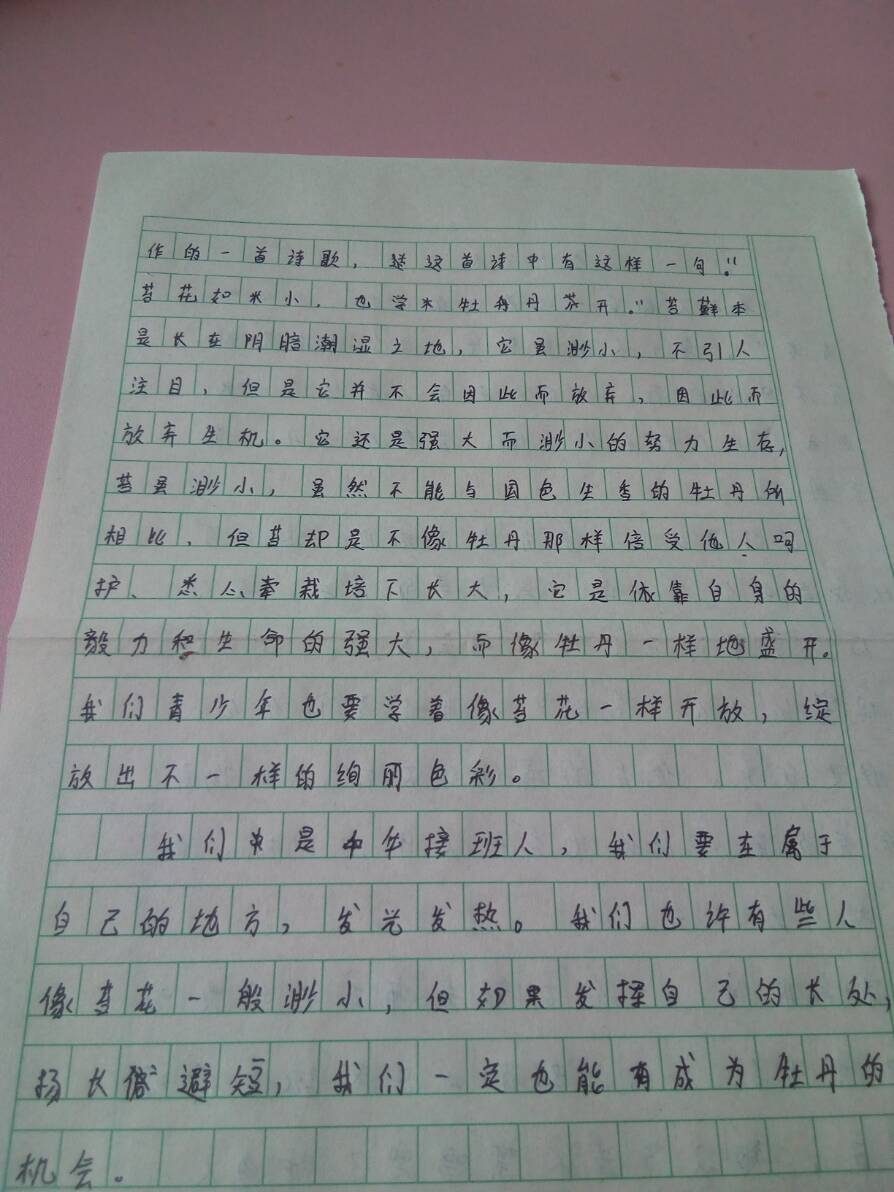 作的一首诗歌，这首诗中有这样一句：“
苔花如米小，也学牡丹开。”苔藓本
是长在阴暗潮湿之地，它虽渺小，不引人
注目，但是它并不会因此而放弃，因此而
放弃生机。它还是强大而渺小的努力生存，
苔虽渺小，虽然不能与国色生香的牡丹所
相比、但苔却是不像牡丹那样倍受他人呵
护、悉心牵栽培下长大，它是依靠自身的
毅力和生命的强大，而像牡丹一样地盛开。
我们青少年也要学着像苔花一样开放，绽
放出不一样的绚丽色彩。
我们是中华接班人，我们要在属于
自己的地方，发光发热。我们也许有些人
像苔花一般渺小，但如果发挥自己的长处，
扬长避短，我们一定也能有成为牡丹的
机会。